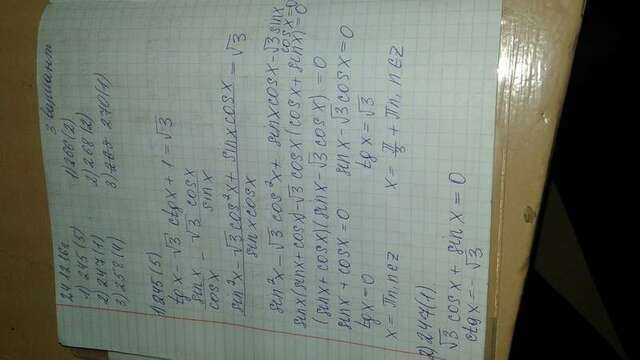 3 вариант
24.12.18г
1) 245(5)
2) 247(1)
3) 257(4)
1) 208(2)
2) 268(2)
3) 270(4)
1) 245(5)
tgx - √3 ctgx + 1 = √3
sinx/cosx - √3 cosx/sinx
sin²x - √3 cos²x + sinx cosx / sinx cosx = √3
sin²x - √3 cos²x + sinx cosx - √3 sinx cosx = 0
sinx(sinx + cosx) - √3 cosx(cosx + sinx) = 0
(sinx + cosx)(sinx - √3 cosx) = 0
sinx + cosx = 0 sinx - √3 cosx = 0
tgx = 0 tgx = √3
x = πn, n∈z x = π/3 + πn, n∈z
2) 247(1)
√3 cosx + sinx = 0
ctgx = -√3